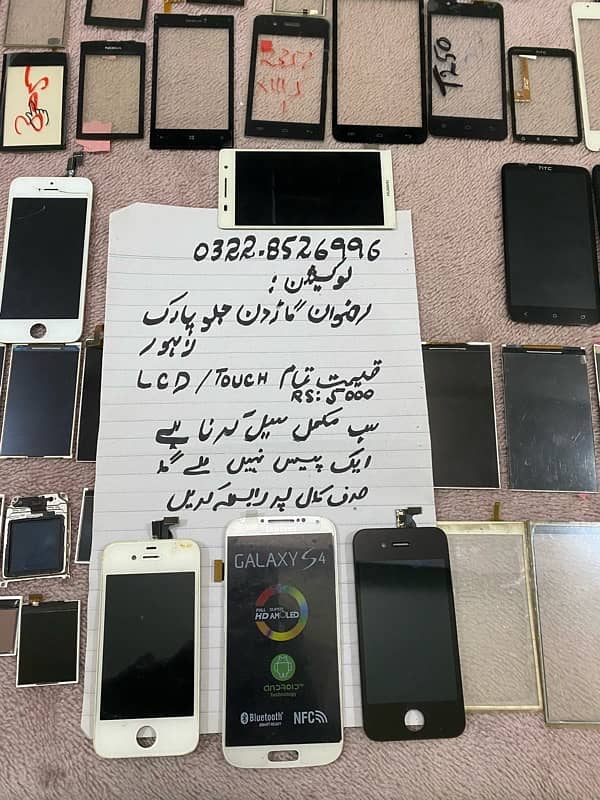 NOKIA
R357
T250
htc
HUAWEI
htc
0322.8526996
لوکیشن :
رضوان گارڈن جلو پارک
لاہور
قیمت تمام LCD/TOUCH
RS: 5000
سب مکمل سیل کرنا ہے
ایک پیس نہیں ملے گا
صرف کال پر رابطہ کریں
GALAXY S4
FULL SUPER
HD AMOLED
ANDROID
technology
Bluetooth
SMART READY
NFC